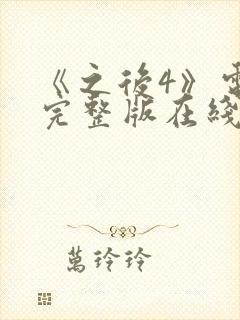 《之後4》
完整版在綫
萬玲玲